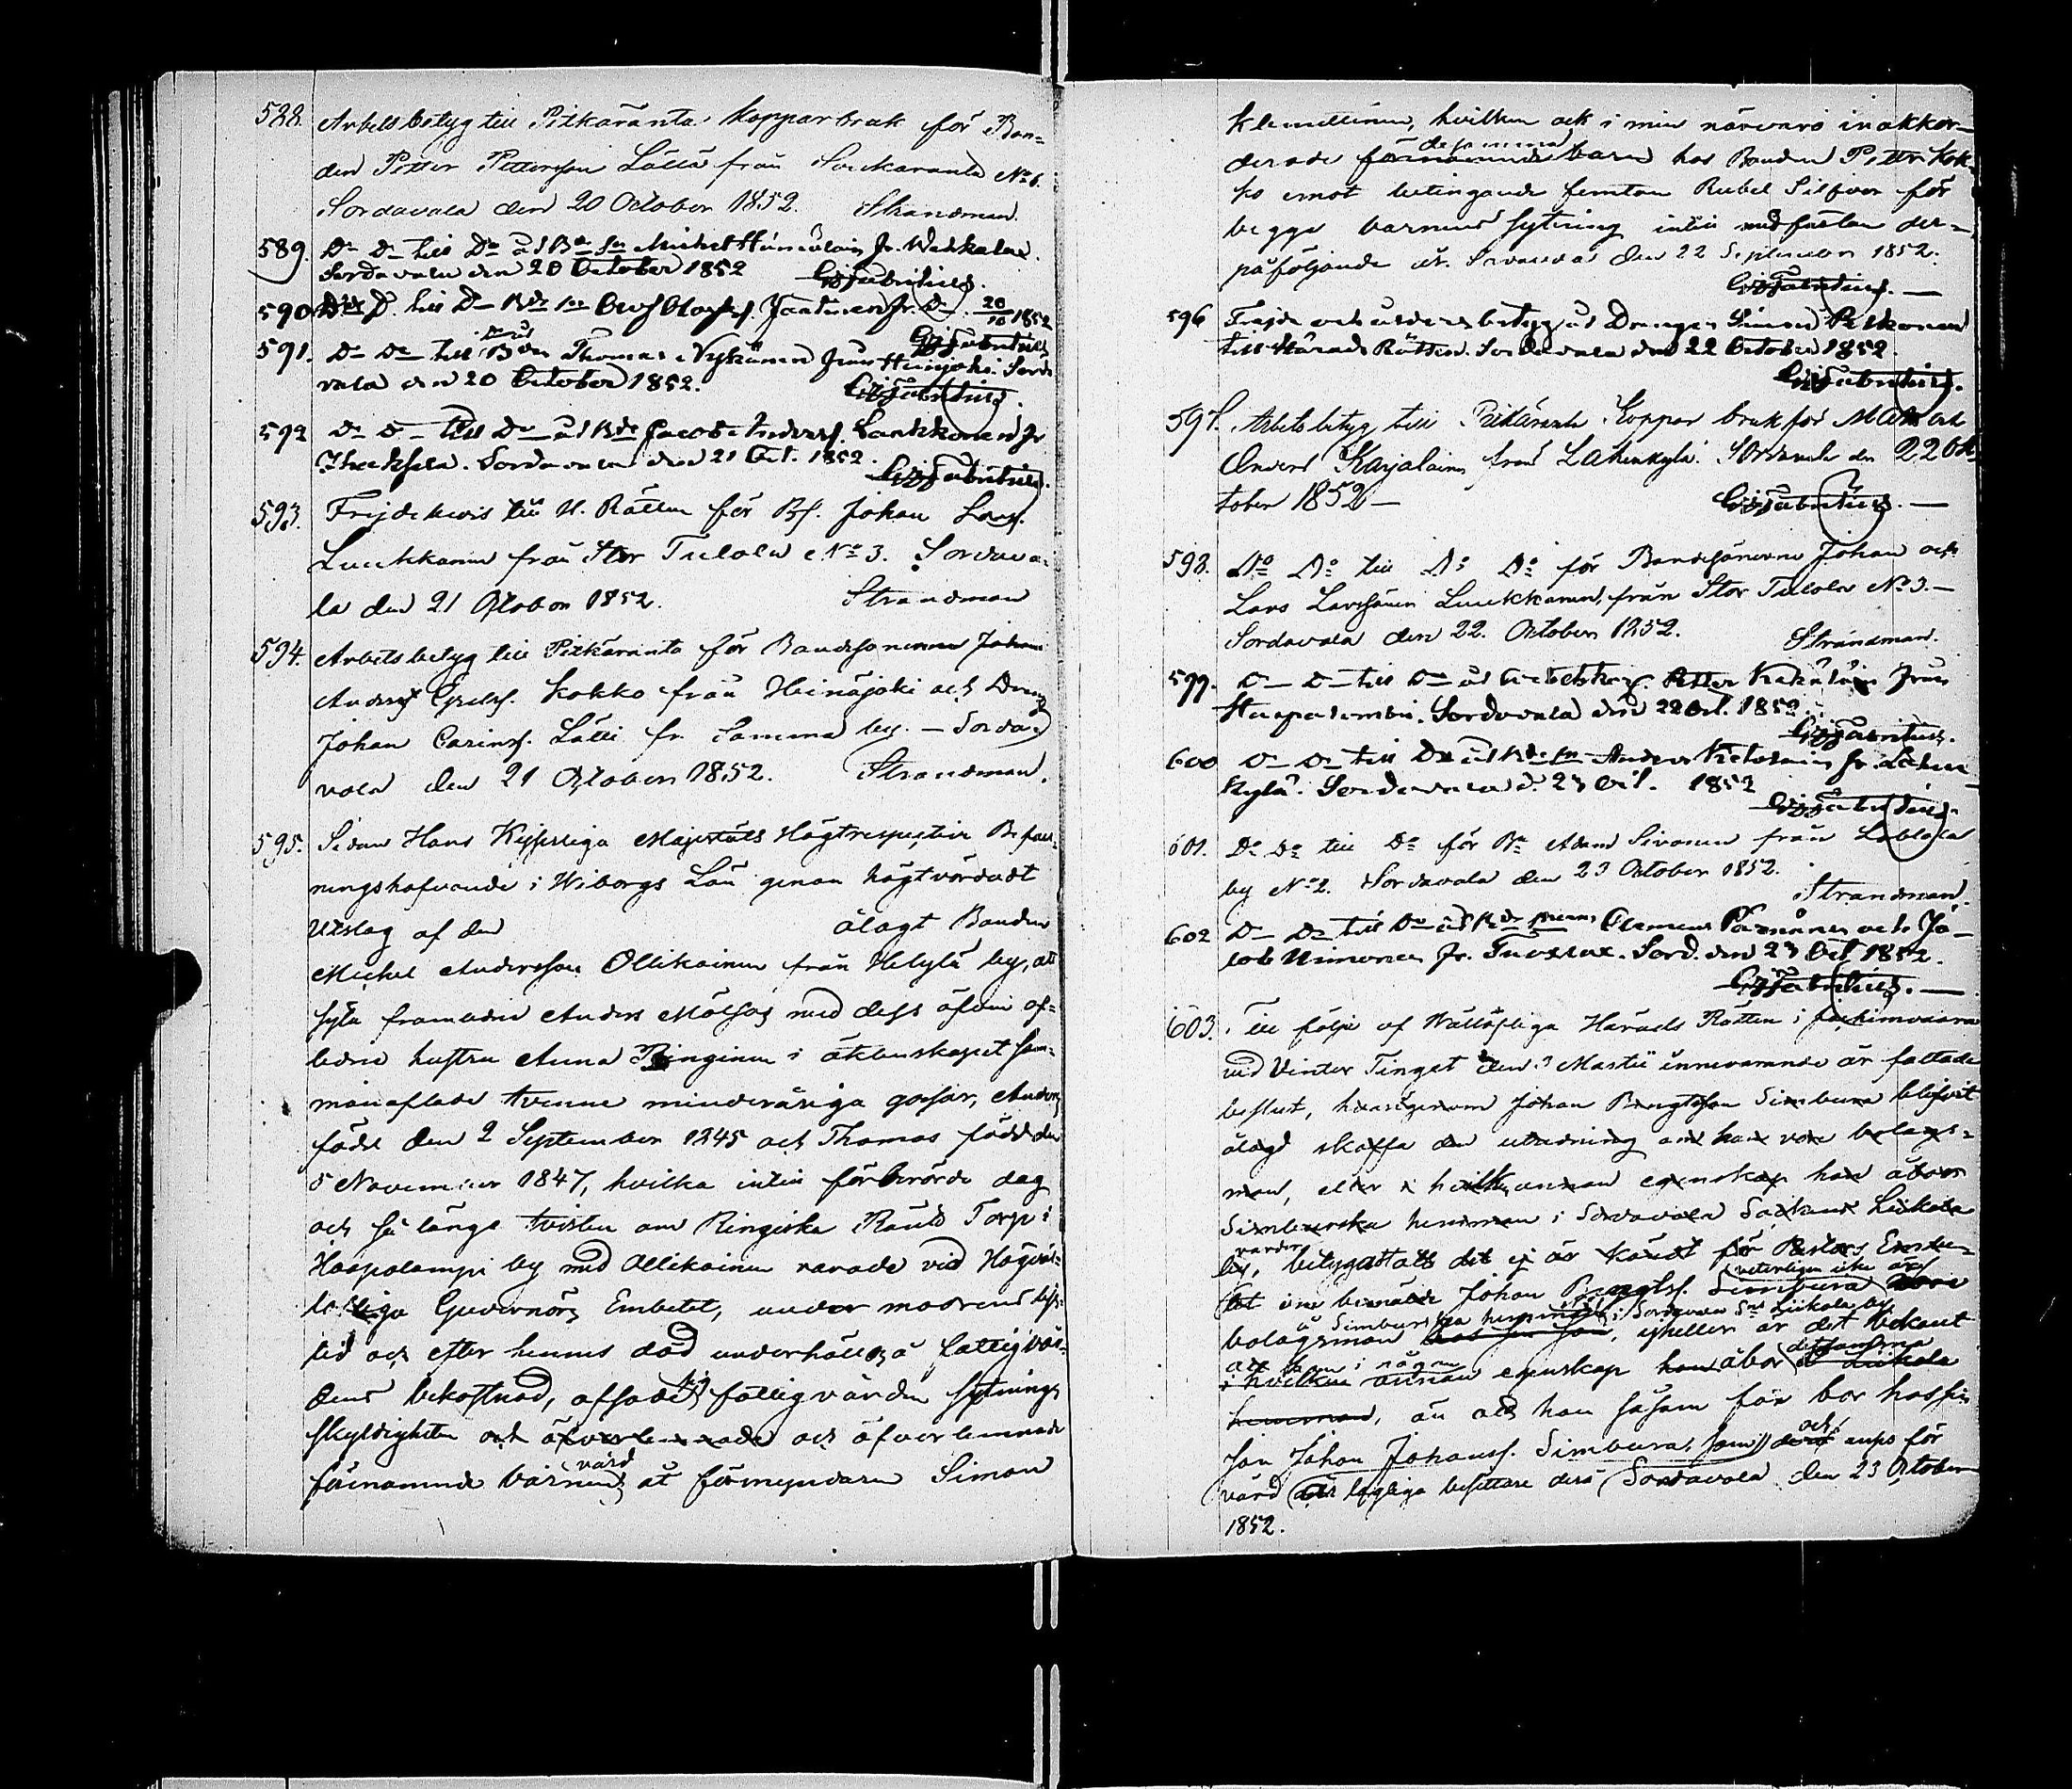 588. Arbetsbetyg till Pitkäranta Kopparbruk för Bon-
den Petter Pettersson Lätti från Sorkaranta No 6.
Sordavala den 20 October 1852. Strandman.
589. Do Do till Do åt Bde sn Michel Hämäläin fr.
Sordavala den 20 October 1852 Fabritius.
590 Do till Do Bde sn Olof Olofss. Jantunen fr. Do 20/10 1852
Fabritius
591. Do Do till Do åt Bden Thomas Nykänen från Heinjoki. Sorda
vala den 20 October 1852. Fabritius.
592 Do Do till Do åt Bde Jacob Anderss. Laukkanen fr
Sordavala den 21 Oct. 1852. Fabritius.
593. Frejdebevis till H. Rätten för Bs. Johan Larss.
Luukkanen från Stor Tulola No 3. Sordava-
la den 21 October 1852. Strandman
594. Arbetsbetyg till Pitkäranta för Bondesonerne Johan
Anderss Kokko från Heinäjoki och Dräng
Johan Carinss. Lätti fr. samma by. — Sorda-
vala den 21 October 1852. Strandman.
595. Sedan Hans Kejserliga Majestäts Högtrespective Befall-
ningshafvande i Wiborgs Län genom högtvördadt
Utslag af den ålagt Bonden
Michel Andersson Ollikainen från Helylä by, att
syta framledne Anders Mölsäs med dess äfven af-
lidne hustru Anna Ringinen i äktenskapet sam-
manaflade tvenne minderåriga gossar, Anders
född den 2 September 1845 och Thomas född den
5 November 1847, hvilka intill förberörde dag
och så länge tvisten om Ringiska Räntä Torp i
Haapalampi by med Ollikainen varade vid Högväl-
borliga Guvernörs Embetet, under modrens lifs-
tid och efter hennes död underhållits å fattigvår-
dens bekostnad, afsade sig fattigvården sytnings
skyldigheten och öfverlemnade och öfverlemnade
förenämnde barnens vård åt förmyndaren Simon
Klemettinen, hvilken ock i min närvaro inackor-
derade förenämnde desamma barn hos Bonden Petter Kok-
ko emot betingande femton Rubel Silfver för
begge barnens sytning intill midfastan der-
påföljande år. Sordavala den 22 September 1852.
Fabritius. —
596 Frejde och åldersbetyg åt Drängen Simon Pitkonen
till Härads Rätten. Sordavala den 22 October 1852.
Fabritius.
597. Arbetsbetyg till Pitkäranta Koppar bruk för
Anders Karjalain från Lahenkylä. Sordavala den 22 Ok-
tober 1852 — Fabritius. —
598. Do Do till Do Do för Bondesönerne Johan och
Lars Larssöner Luukkanen, från Stor Tulola No 3. —
Sordavala den 22. October 1852. Strandman.
599. Do Do till Do åt Arbetskarl Petter från
Haapalambi. Sordavala den 22 Oct. 1852.
Fabritius.
600 Do Do till Do åt Bde sn Anders Kietäväin fr. Lahen
kylä. Sordavala d. 23 Oct. 1852
Fabritius.
601. Do Do till Do för Bn Adam Sivonen från
by No 2. Sordavala den 23 October 1852.
Strandman.
602 Do Do till Do åt Bde sönerne Clemens och Ja-
cob Nimonen fr. Tuoxlax. Sord. den 23 Oct 1852.
Fabritius. —
603. Till följe af Wällofliga Härads Rätten i Jackimvaara
vid Vinter Tinget den 3 Martii innevarande år fattade
beslut, hvarigenom Johan Bengtsson Simbura blifvit
ålagd skaffa den utredning om han vore bolags-
man, eller i hvilken annan egenskap han åbor
Simburska hemman i Sordavala Sockens Liikola
by, varder betygatt att det ej är kändt för Pastors Embe-
tet om bemälte Johan Bengtss. Simbura veterligen icke är
bolagsman å Simburska hemmanet i Sordavala Sn Liikola by, ejheller är det bekant
att han i någon i hvilken annan egenskap han åbor detsamma å Liikola
hemman, än att han såsom far bor hos sin
son Johan Johanss. Simbura, som och anses för
värd och lagliga besittare derå Sordavala den 23 October
1852.